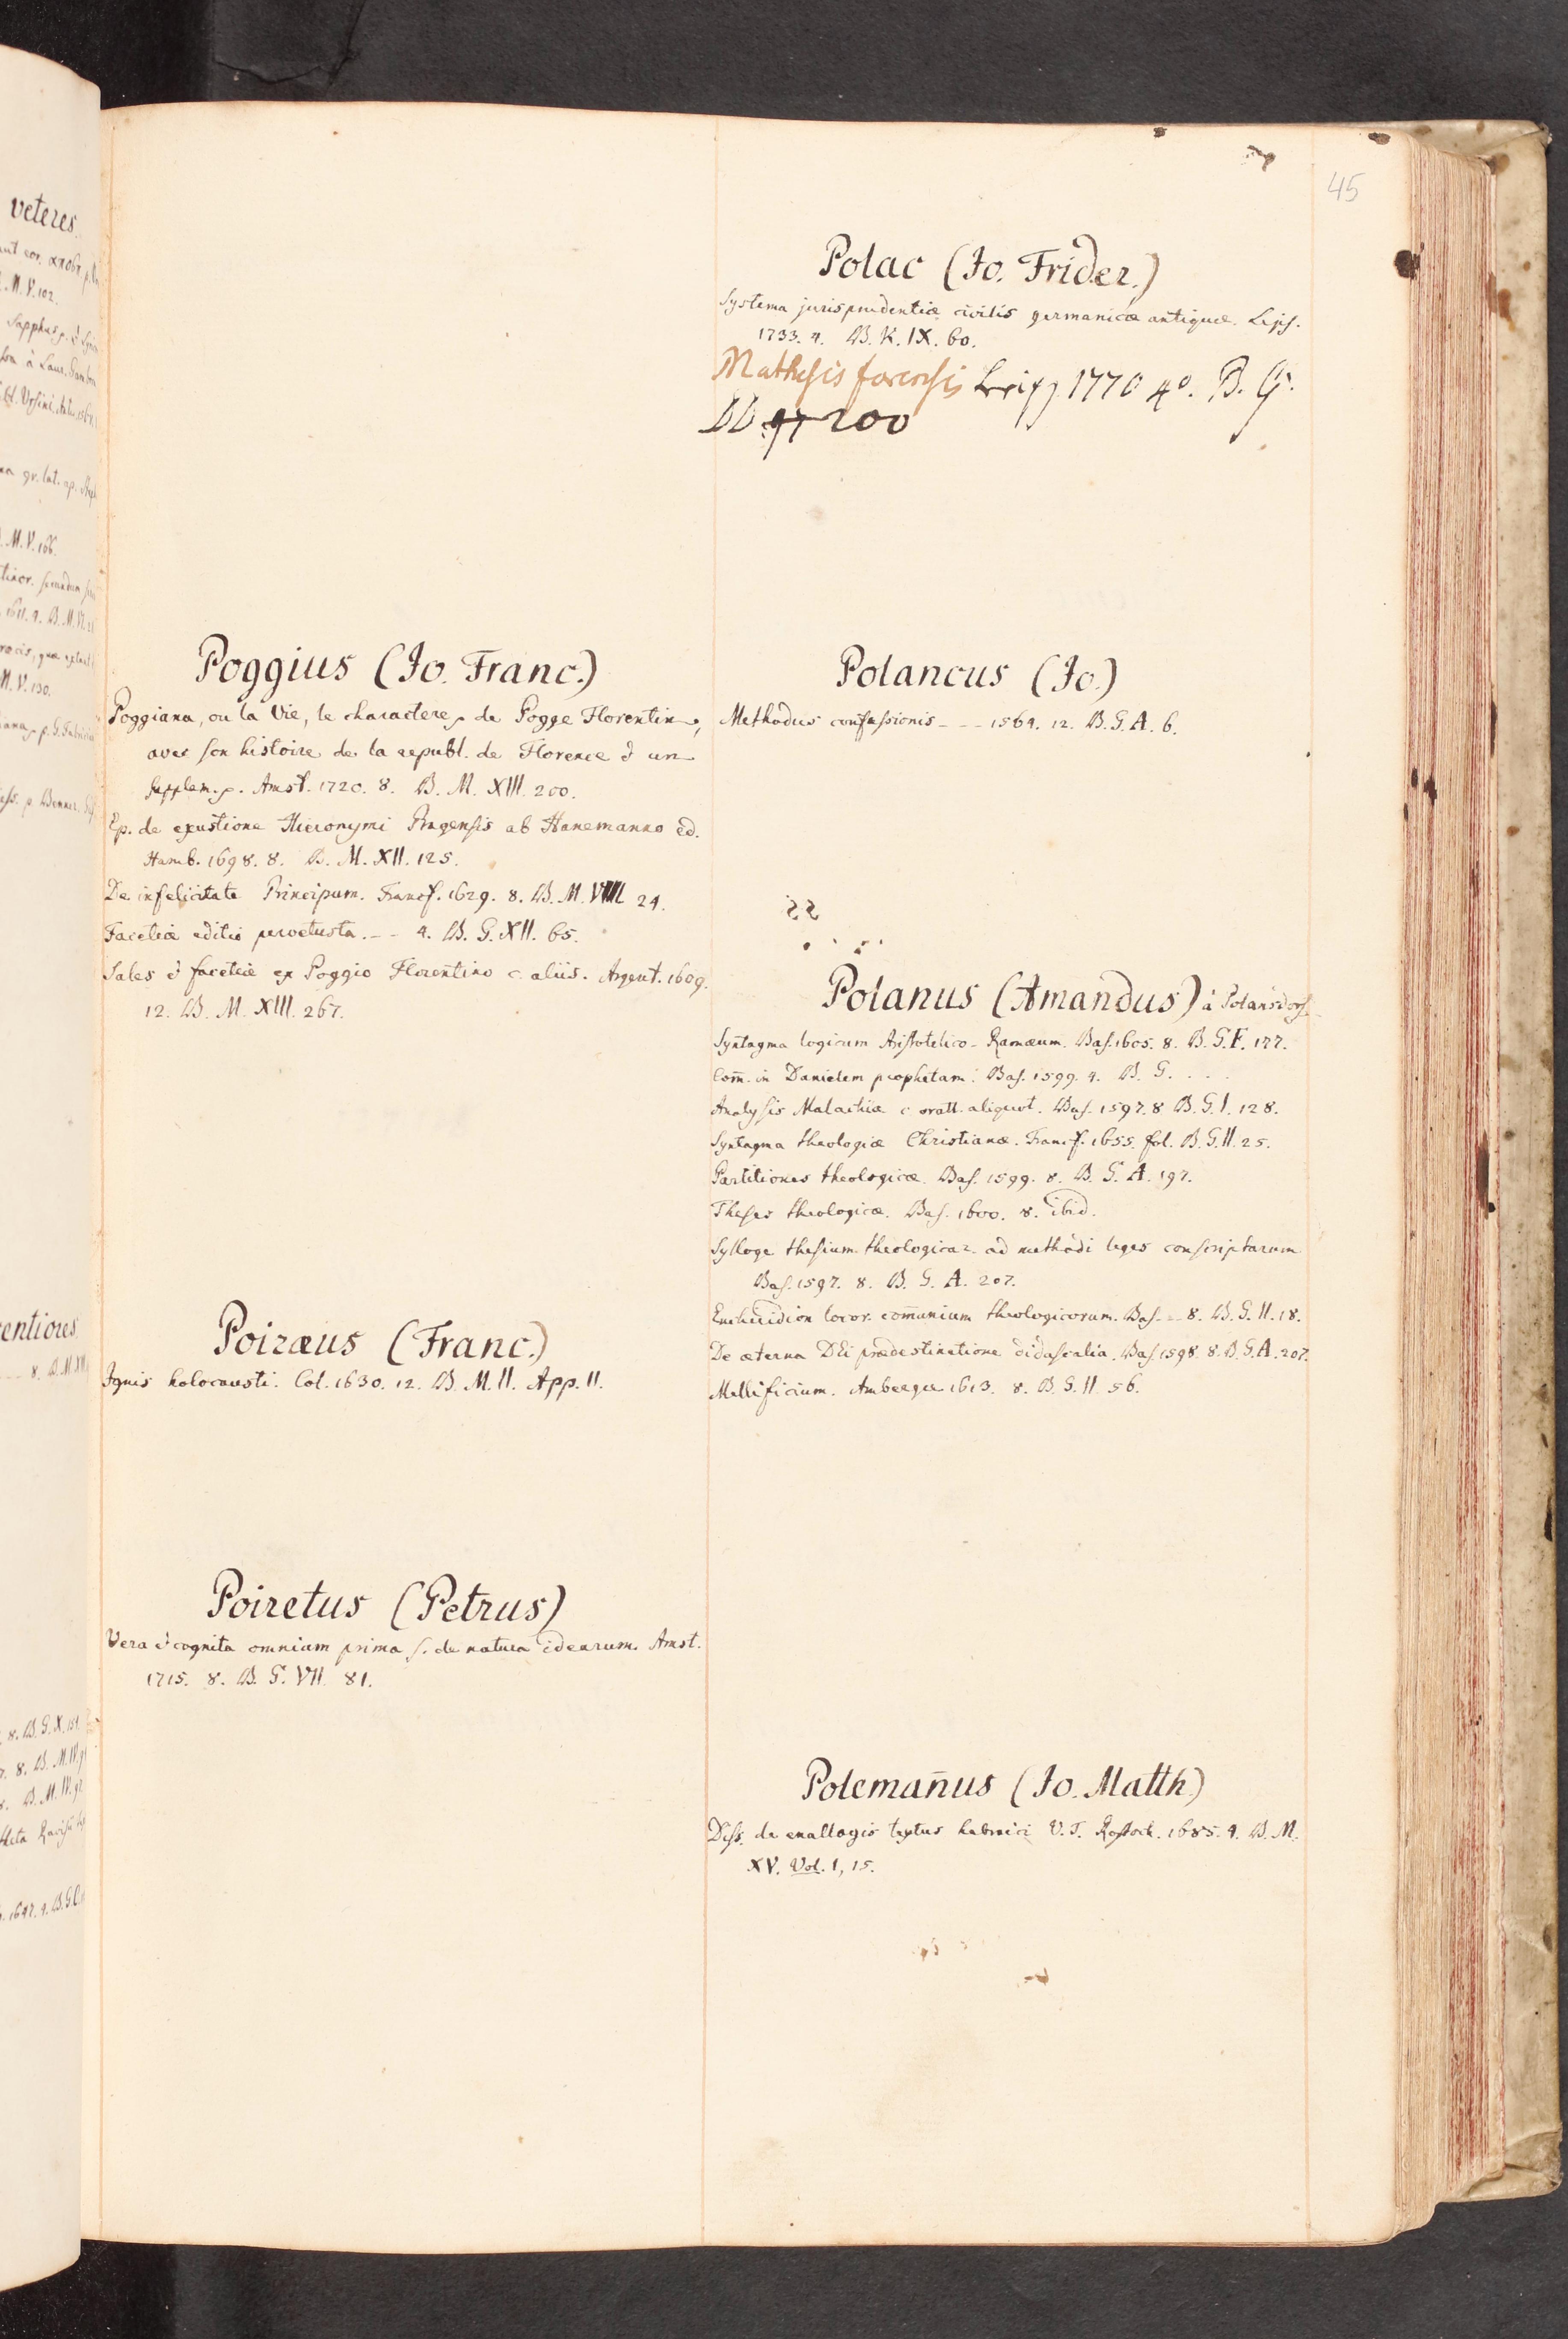 veteres
M. V. 102.
M. V. 106.
M. V. 130.
entiores
8. B. G. X. 151.
8. B. M. IV.
B. M. IV. 92
1647. 4. B. G.
Poggius (Jo. Franc.)
Poggiana, ou la Vie, le charactere, de Pogge Florentin,
avec son histoire de la republ. de Florence & un
Supplem. Amst. 1720. 8. B. M. XIII. 200.
Ep. de exustione Hieronymi Pragensis ab Hanemanno ed.
Hamb. 1698. 8. B. M. XII. 125.
De infelicitate Principum. Francf. 1629. 8. B. M. VIII 24.
Facetiæ editio pervetusta. - - 4. B. G. XII. 65.
Sales & facetiæ ex Poggio Florentino c. aliis. Argent. 1609.
12. B. M. XIII. 267.
Poiræus (Franc.)
Ignis holocausti. Col. 1630. 12. B. M. II. App. 11.
Poiretus (Petrus)
Vera & cognita omnium prima s. de natura idearum. Amst.
1715. 8. B. G. VII. 81.
45
Polac (Jo. Frider.)
Systema jurisprudentiæ civilis germanicæ antiquæ. Lips.
1733. 4. B. K. IX. 60.
Mathesis forensis Leipz 1770 4º. B. G.
200
Polancus (Jo.)
Methodus confessionis - - - 1564. 12. B. G. A. 6.
Polanus (Amandus) à Polansdorf
Syntagma logicum Aristotelico-Ramæum. Bas. 1605. 8. B. G. F. 177.
Com̄. in Danielem prophetam. Bas. 1599. 4. B. G. . . .
Analysis Malachiæ c. oratt. aliquot. Bas. 1597. 8 B. G. I. 128.
Syntagma theologiæ Christianæ. Francf. 1655. fol. B. G. II. 25.
Partitiones theologicæ. Bas. 1599. 8. B. G. A. 197.
Theses theologicæ. Bas. 1600. 8. ibid.
Sylloge thesium theologicar. ad methodi leges conscriptarum
Bas. 1597. 8. B. G. A. 207.
Enchiridion locor. com̄unium theologicorum. Bas. - - 8. B. G. II. 18.
De æterna DEi prædestinatione didascalia. Bas. 1598. 8. B. G. A. 207.
Mellificium. Ambergæ 1613. 8. B. G. II. 56.
Poleman̄us (Jo. Matth.)
Diss. de enallagis textus hebraici V. T. Rostoch. 1685. 4. B. M.
XV. Vol. 1, 15.